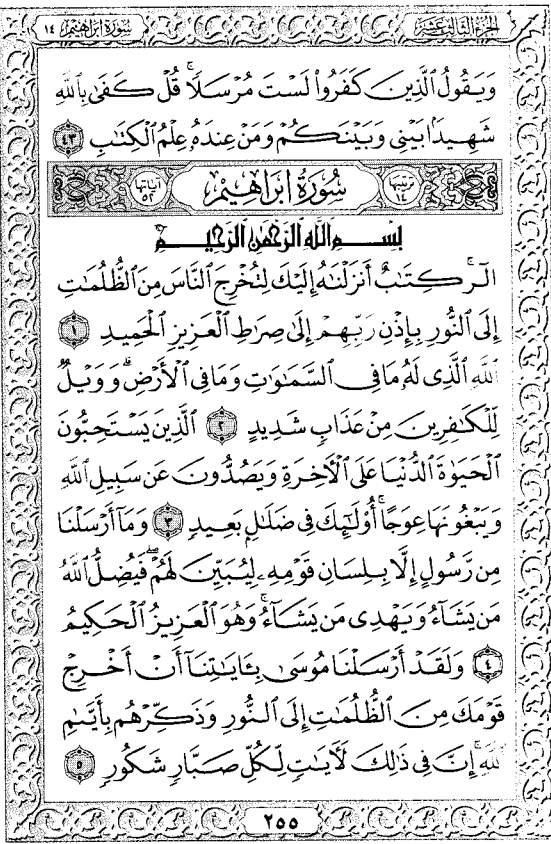 سورة ابراهيم ١٤ الجزء الثالث عشر
وَيَقُولُ ٱلَّذِينَ كَفَرُوا۟ لَسْتَ مُرْسَلًا ۚ قُلْ كَفَىٰ بِٱللَّهِ
شَهِيدًۢا بَيْنِى وَبَيْنَكُمْ وَمَنْ عِندَهُۥ عِلْمُ ٱلْكِتَٰبِ ٤٣
ترتيبها ١٤ سُورَةُ ابْرَاهِيمْ آياتها ٥٢
بِسْمِ ٱللَّهِ ٱلرَّحْمَٰنِ ٱلرَّحِيمِ
الٓر ۚ كِتَٰبٌ أَنزَلْنَٰهُ إِلَيْكَ لِتُخْرِجَ ٱلنَّاسَ مِنَ ٱلظُّلُمَٰتِ
إِلَى ٱلنُّورِ بِإِذْنِ رَبِّهِمْ إِلَىٰ صِرَٰطِ ٱلْعَزِيزِ ٱلْحَمِيدِ ١
ٱللَّهِ ٱلَّذِى لَهُۥ مَا فِى ٱلسَّمَٰوَٰتِ وَمَا فِى ٱلْأَرْضِ ۗ وَوَيْلٌ
لِّلْكَٰفِرِينَ مِنْ عَذَابٍ شَدِيدٍ ٢ ٱلَّذِينَ يَسْتَحِبُّونَ
ٱلْحَيَوٰةَ ٱلدُّنْيَا عَلَى ٱلْءَاخِرَةِ وَيَصُدُّونَ عَن سَبِيلِ ٱللَّهِ
وَيَبْغُونَهَا عِوَجًا ۚ أُو۟لَٰٓئِكَ فِى ضَلَٰلٍۭ بَعِيدٍ ٣ وَمَآ أَرْسَلْنَا
مِن رَّسُولٍ إِلَّا بِلِسَانِ قَوْمِهِۦ لِيُبَيِّنَ لَهُمْ ۖ فَيُضِلُّ ٱللَّهُ
مَن يَشَآءُ وَيَهْدِى مَن يَشَآءُ ۚ وَهُوَ ٱلْعَزِيزُ ٱلْحَكِيمُ
٤ وَلَقَدْ أَرْسَلْنَا مُوسَىٰ بِـَٔايَٰتِنَآ أَنْ أَخْرِجْ
قَوْمَكَ مِنَ ٱلظُّلُمَٰتِ إِلَى ٱلنُّورِ وَذَكِّرْهُم بِأَيَّىٰمِ
ٱللَّهِ ۚ إِنَّ فِى ذَٰلِكَ لَءَايَٰتٍ لِّكُلِّ صَبَّارٍ شَكُورٍ ٥
٢٥٥